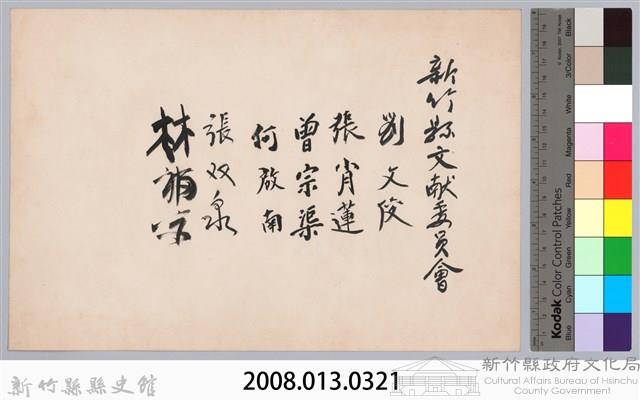 新竹縣文献委員會
劉文俊
張肖蓮
曾宗渠
何啟南
張双泉
林
Black
3/Color
White
Magenta
Red
Yellow
Green
Cyan
Blue
Kodak Color Control Patches
新竹縣縣史館
2008.013.0321
新竹縣政府文化局
Cultural Affairs Bureau of Hsinchu
County Government